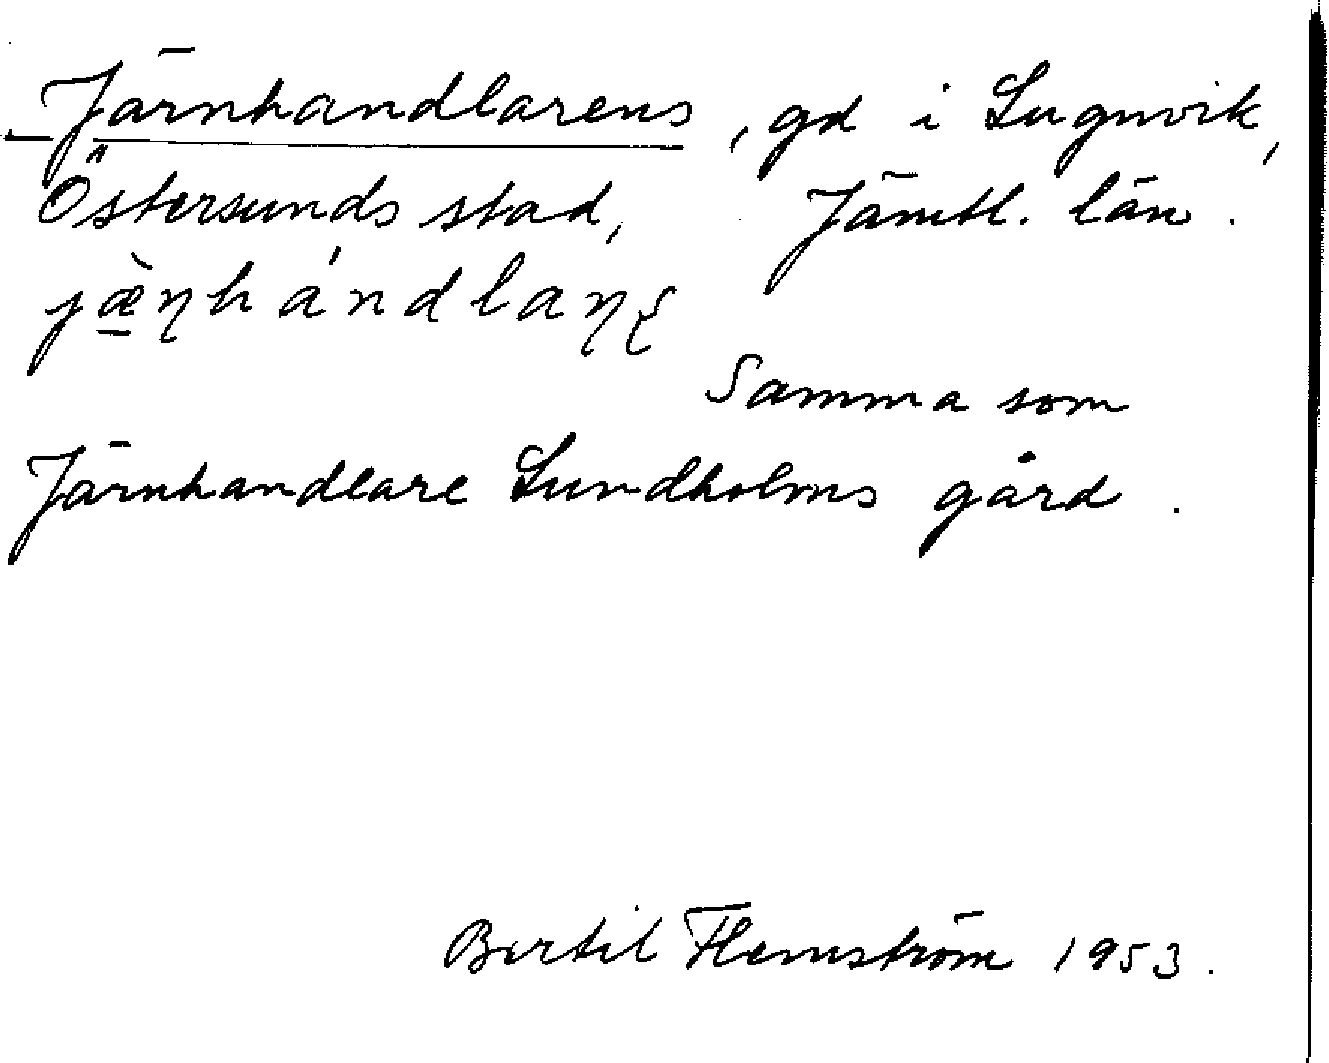 Järnhandlarens, gd i Lugnvik,
Östersunds stad, Jämtl. län.
jæ̠̀ɳhándlaɳʂ
Samma som
Järnhandlare Lundholms gård.
Bertil Flemström 1953.